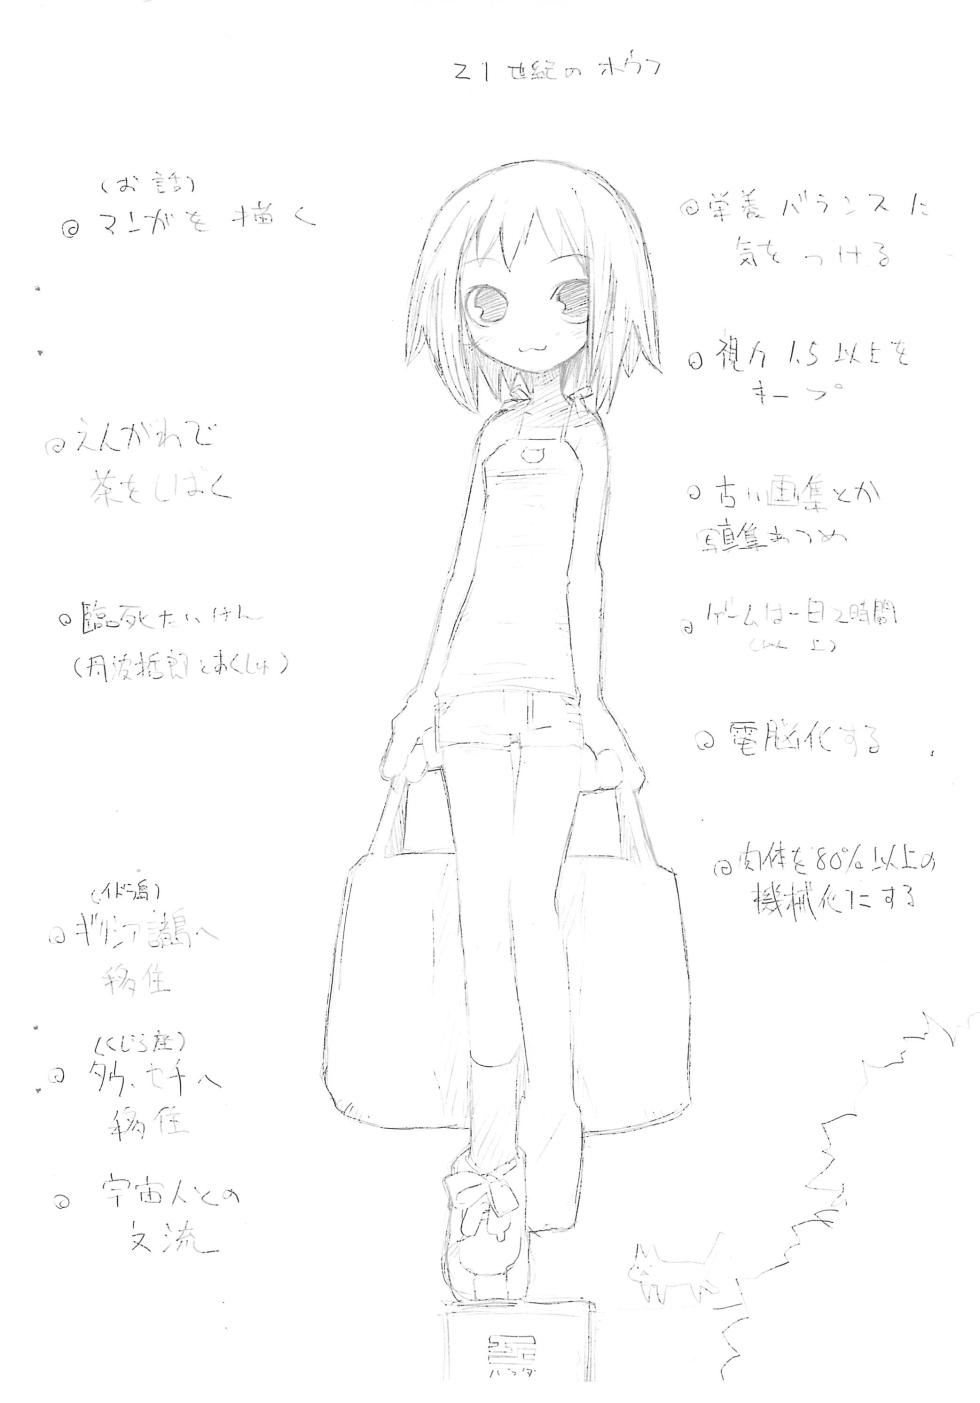 21世紀のホウフ
(お話)
◎マンガを描く
◎えんがわで
茶をしばく
◎臨死たいけん
(丹波哲郎とあくしゅ)
(イドラ島)
◎ギリシア諸島へ
移住
(くじら座)
◎タウ・セチへ
移住
◎宇宙人との
交流
◎栄養バランスに
気をつける
◎視力1.5以上を
キープ
◎古い画集とか
写真集あつめ
◎ゲームは一日2時間
(以上)
◎電脳化する
◎肉体を80%以上の
機械化にする
ハンダ